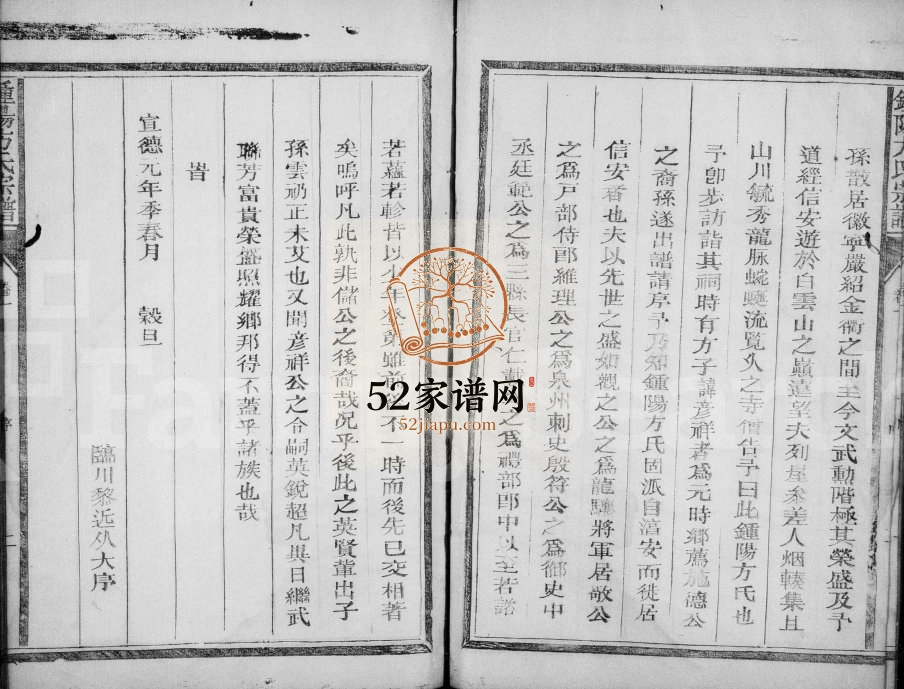 孫散居徽寧嚴紹金衢之間至今文武勳階極其榮盛及予
道經信安遊於白雲山之巔遠望夫列屋參差人烟輳集且
山川毓秀龍脉蜿蜒流覽久之寺僧告予曰此鍾陽方氏也
予卽步訪詣其祠時有方子諱彥祥者爲元時鄉薦施德公
之裔孫遂出譜請序予乃知鍾陽方氏固派自淯安而徙居
信安者也夫以先世之盛如觀之公之爲龍驤將軍居敬公
之爲戶部侍郎維理公之爲泉州刺史殷符公之爲御史中
丞廷範公之爲三縣長官仁載之爲禮部郎中以至若諮
若蘊若軫皆以少年登第雖前不一時而後先已交相著
矣嗚呼凡此孰非儲公之後裔哉况乎後此之英賢輩出子
孫雲礽正未艾也又聞彥祥公之令嗣英銳超凡異日繼武
聯芳富貴榮盛照耀鄉邦得不蓋乎諸族也哉
旹
宣德元年季春月 榖旦
臨川黎近大序
鍾陽方氏宗譜
52家谱网
52jiapu.com